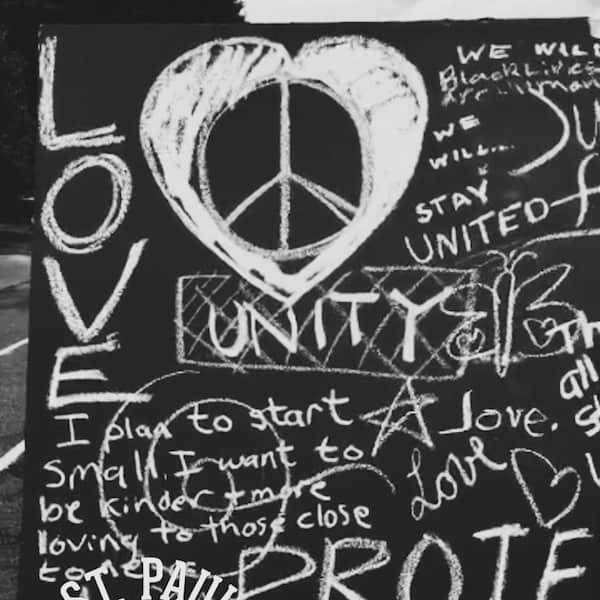 LOVE
WE WILL
Black Lives
Are Human
WE
WILL...
STAY
UNITED
UNITY
I plan to start
small. I want to
be kinder + more
loving to those close
to me
love.
Love
all
ST. PAUL
PROTE